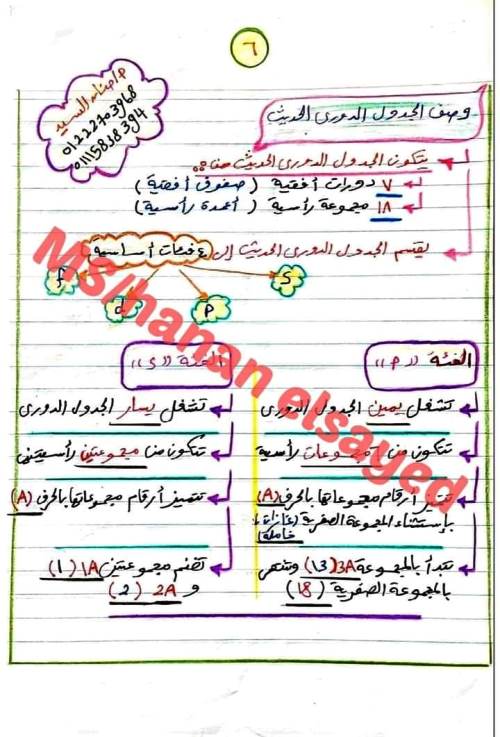 ٦
م/حنان السيد
01222703968
01115848394
وصف الجدول الدورى الحديث
يتكون الجدول الدورى الحديث من :
٧ دورات أفقية ( صفوف أفقية )
١٨ مجموعة رأسية ( أعمدة رأسية )
يقسم الجدول الدورى الحديث إلى ٤ فئات أساسية
f d P S
الفئة "P"
تشغل يمين الجدول الدورى
تتكون من ٦ مجموعات رأسية
تتميز أرقام مجموعاتها بالحرف (A)
بإستثناء المجموعة الصفرية (غازات
خاملة)
تبدأ بالمجموعة 3A (13) وتنتهى
بالمجموعة الصفرية (18)
الفئة "S"
تشغل يسار الجدول الدورى
تتكون من مجموعتين رأسيتين
تتميز أرقام مجموعاتها بالحرف (A)
تضم مجموعتين 1A (1)
و 2A (2)
MS/hanan elsayed